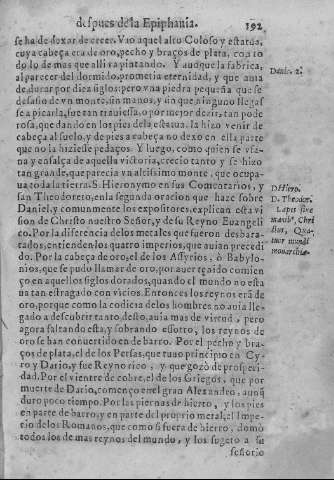 despues de la Epiphania. 192
se ha de dexar de creer. Vio aquel alto Coloso y estatua,
cuya cabeça era de oro, pecho y braços de plata, con to
do lo de mas que alli va pintando. Y aunque la fabrica,
al parecer del dormido, prometia eternidad, y que auia
de durar por diez siglos: pero vna piedra pequeña que se
desasio de vn monte, sin manos, y do que ninguno llegas
se a picarla, fue tan trauiessa, o por mejor dezir, tan pode
rosa, que dando en los pies de la estatua, la hizo venir de
cabeça al suelo, y de pies a cabeça no dexo en ella parte
que no la hiziesse pedaços. Y luego, como quien se vfa-
na y ensalça de aquella victoria, crecio tanto y se hizo
tan grande, que parecia vn altissimo monte, que ocupa-
ua toda la tierra. S. Hieronymo en sus Comentarios, y
san Theodoreto, en la segunda oracion que haze sobre
Daniel, y comunmente los expositores, explican esta vi
sion de Christo nuestro Señor, y de su Reyno Euangeli
co. Por la diferencia de los metales que fueron desbara-
tados, entienden los quatro imperios, que auian precedi
do. Por la cabeça de oro, el de los Assyrios, ò Babylo-
nios, que se pudo llamar de oro, por auer tenido comien
ço en aquellos siglos dorados, quando el mundo no esta
ua tan estragado con vicios. Entonces los reynos erã de
oro, porque como la codicia de los hombres no auia lle-
gado a descubrir tanto, desto, auia mas de virtud, pero
agora faltando esta, y sobrando essotro, los reynos de
oro se han conuertido en de barro. Por el pecho y bra-
ços de plata, el de los Persas, que tuuo principio en Cy-
ro y Dario, y fue Reyno rico, y que gozò de prosperi-
dad. Por el vientre de cobre, el de los Griegos, que por
muerte de Dario, començo en el gran Alexandro, aunq̃
duro poco tiempo. Por las piernas de hierro, y los pies
en parte de barro, y en parte del proprio metal, el Impe-
rio de los Romanos, que como si fuera de hierro, domò
todos los de mas reynos del mundo, y los sugeto a su
señorio
Danie. 2.
D. Hiero.
D. Theodor.
Lapis sine
manib⁹, Chri
stus, Qua-
tuor mundi
monarchiæ.